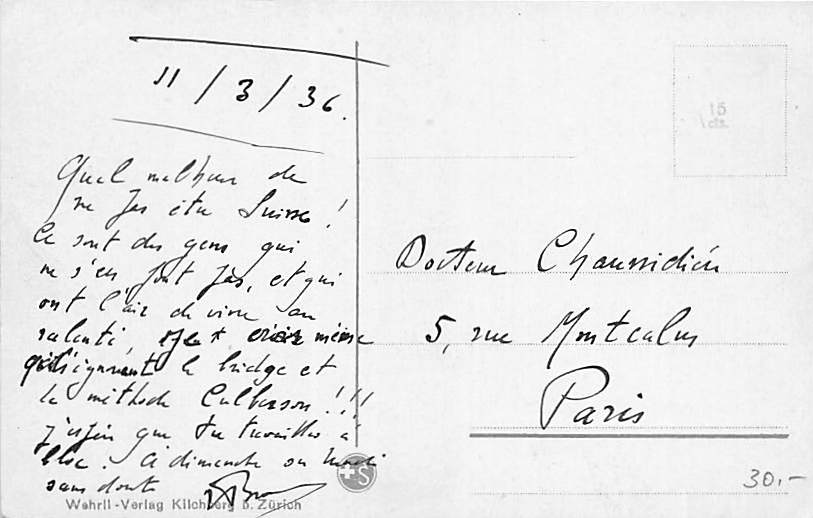 11/3/36.
Quel malheur de
ne pas être Suisse!
Ce sont des gens qui
ne s'en font pas, et qui
ont l'air de vivre au
ralenti, et crois même
qu'ils ignorent le bridge et
la méthode Culberson!!!
J'espère que tu travailles à
bloc. À dimanche ou lundi
sans doute
Docteur Chaussidién
5, rue Montcalm
Paris
15
cts
+S
30.-
Wehrli-Verlag Kilchberg b. Zürich